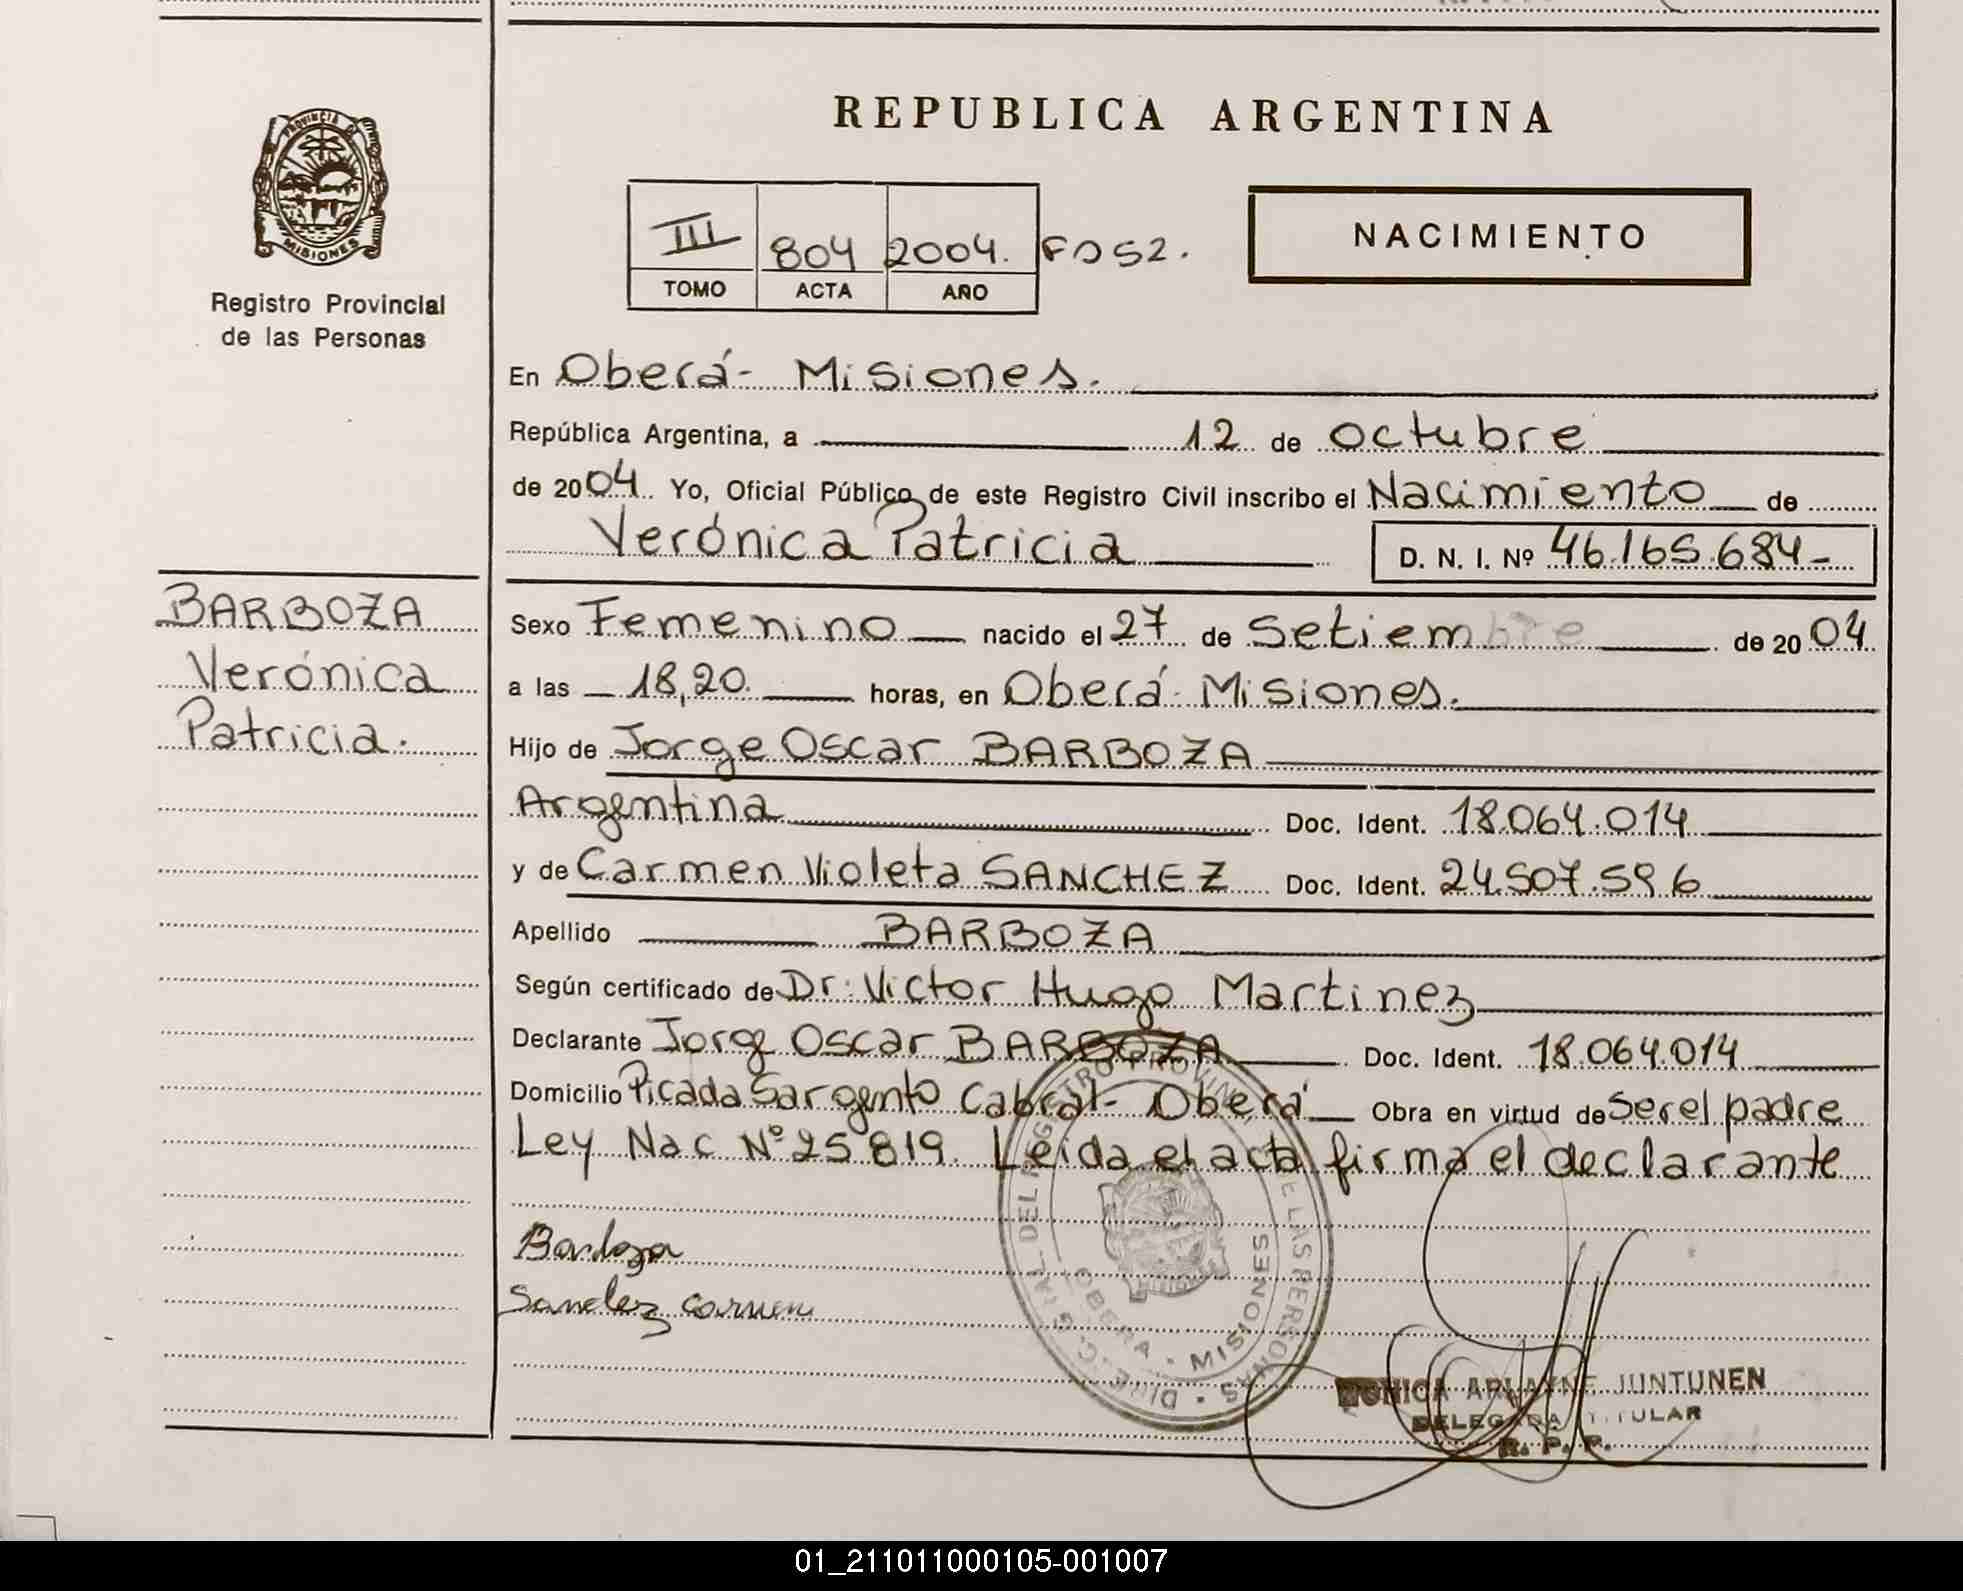 REPUBLICA ARGENTINA
PROVINCIA DE
MISIONES
Registro Provincial
de las Personas
III 804 2004. Fo 52.
TOMO ACTA AÑO
NACIMIENTO
En Oberá - Misiones.
República Argentina, a 12 de octubre
de 2004. Yo, Oficial Público de este Registro Civil inscribo el Nacimiento de
Verónica Patricia D. N. I. Nº 46.165.684-
BARBOZA
Verónica
Patricia.
Sexo Femenino nacido el 27 de Setiembre de 2004
a las 18,20. horas, en Oberá - Misiones.
Hijo de Jorge Oscar BARBOZA
Argentina Doc. Ident. 18.064.014
y de Carmen Violeta SANCHEZ Doc. Ident. 24.507.596
Apellido BARBOZA
Según certificado de Dr: Victor Hugo Martinez
Declarante Jorge Oscar BARBOZA Doc. Ident. 18.064.014
Domicilio Picada Sargento Cabral - Oberá Obra en virtud de ser el padre
Ley Nac Nº 25 819. Leida el acta firma el declarante
Barboza
Sanchez Carmen
DIREC. G'IAL DEL REGISTRO PROVINCIAL DE LAS PERSONAS
OBERA - MISIONES
MONICA ARLAYNE JUNTUNEN
DELEGADA TITULAR
R. P. P.
01_211011000105-001007